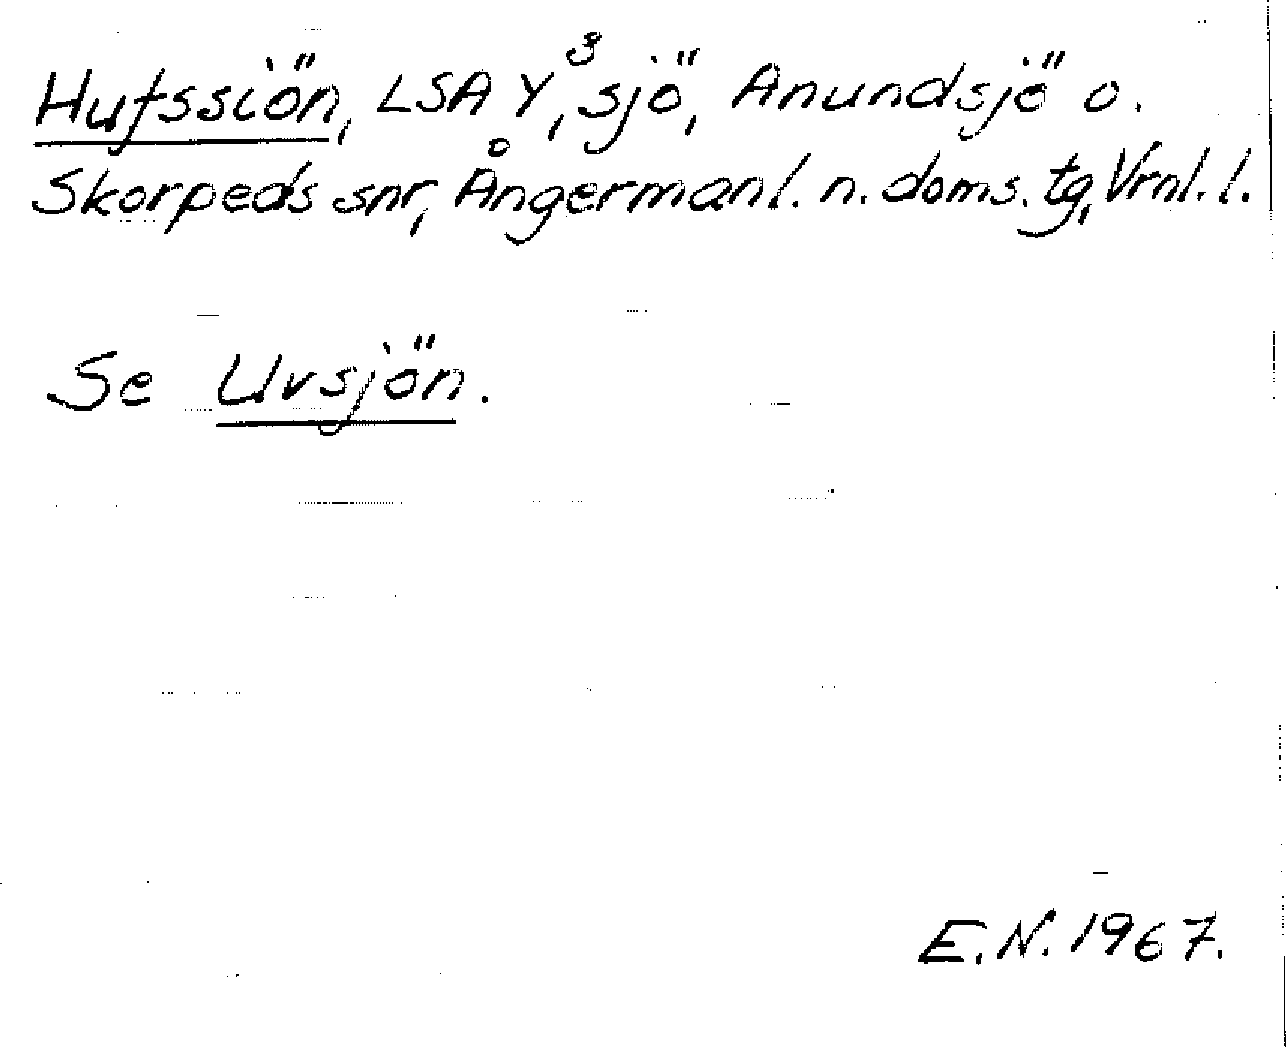 Hufssiön, LSA Y³, sjö, Anundsjö o.
Skorpeds snr, Ångermanl. n. doms. tg, Vrnl. l.
Se Uvsjön.
E.N. 1967.